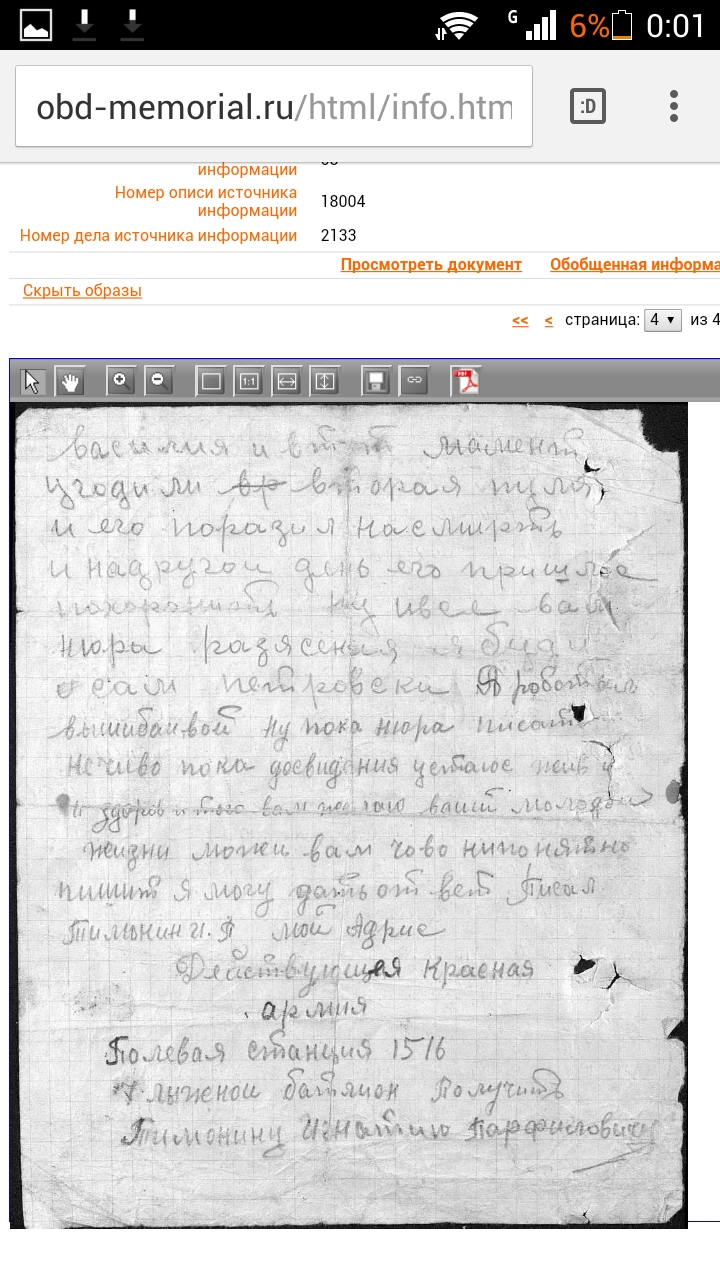 G 6% 0:01
obd-memorial.ru/html/info.htm
:D
информации
Номер описи источника
информации 18004
Номер дела источника информации 2133
Просмотреть документ Обобщенная информа
Скрыть образы
<< < страница: 4 из 4
1:1 PDF
василия и в тот мамент
угодили вр вторая пуля
и его поразил насмирть
и надругои день его пришлос
похоронит ну ивсе вам
нюра разясения
сам петровски Я работал
ну пока нюра писат
нечиво пока досвидания устаюс жив и
и здоров и того вам желаю вашии молодои
жизни можи вам чово нипонятно
пишит я могу дать от вет Писал
Тимонин И. П мои Адрис
Действующея Красная
армия
Полевая станция 1516
лыжнои батялион Получить
Тимонину Игнатию Парфиловичу